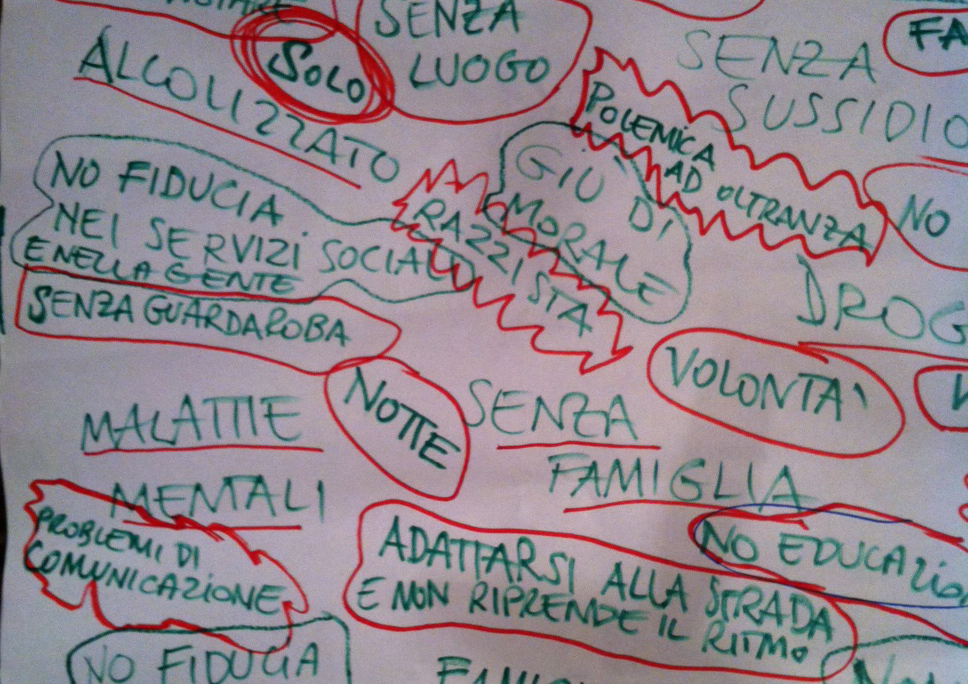 SENZA
LUOGO
SOLO
ALCOLIZZATO
SENZA
SUSSIDIO
FA
POLEMICA
AD OLTRANZA
NO
GIÙ DI
MORALE
NO FIDUCIA
NEI SERVIZI SOCIALI
E NELLA GENTE
RAZZISTA
DROG
SENZA GUARDAROBA
NOTTE
VOLONTA'
MALATTIE
MENTALI
SENZA
FAMIGLIA
PROBLEMI DI
COMUNICAZIONE
ADATTARSI ALLA STRADA
E NON RIPRENDE IL RITMO
NO EDUCAZIO
NO FIDUCIA